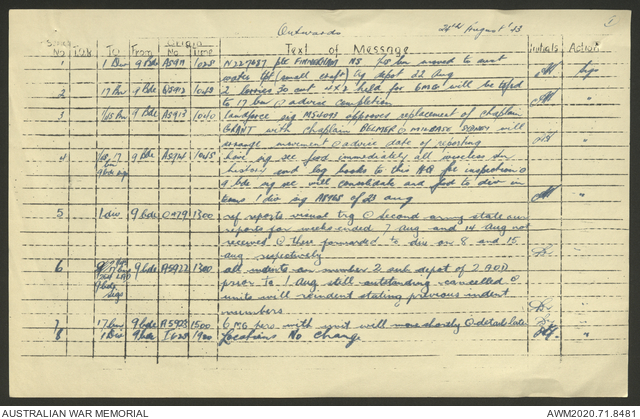 Outwards 24th August '43 1
Series No To To From Origin No Time Text of Message Initials Action
1 1 Div 9 Bde A5911 1025 N227687 pte 45 bn moved to aust
water tpt (small craft) trg depot 22 aug
2 17 Bn 9 Bde 1030 2 carriers 30 cwt 4x2 held for 6 MG will be tfrd
to 17 bn O advise completion
3 1/45 Bn 9 Bde A5913 1040 landforce sig MS4093 approves replacement of chaplain
GRANT with chaplain O MILBASE SYDNEY will
arrange movement O advise date of reporting
4 9 Bde A5914 1045 have sig sec fwd immediately all wireless
history and log books to this HQ for inspection O
9 bde sig sec will consolidate and fwd to div in
1 div sig of 23 aug
5 1 div 9 bde 0479 1300 ref reports visual trg O second army state our
reports for weeks ended 7 aug and 14 aug not
received O these forwarded to div on 8 and 15
aug respectively
6 9 bde A5922 1300 all indents on number 2 sub depot of 2 AOD
prior to 1 aug still outstanding cancelled O
units will reindent stating previous indent
numbers
7 17 bn 9 bde A5923 1500 6 MG pers with unit will move shortly O details later
8 1 Div 9 bde I 628 1900 Locations No Change
AUSTRALIAN WAR MEMORIAL AWM2020.71.8481